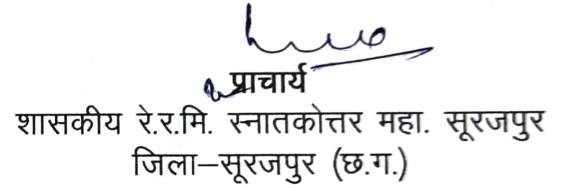 प्राचार्य
शासकीय रे.र.मि. स्नातकोत्तर महा. सूरजपुर
जिला–सूरजपुर (छ.ग.)